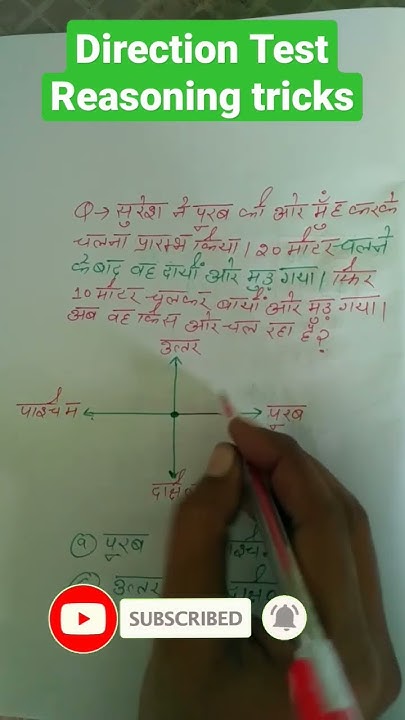 Direction Test
Reasoning tricks
Q→ सुरेश ने पूरब की ओर मुँह करके
चलना प्रारम्भ किया। 20 मीटर चलने
के बाद वह दायीं ओर मुड़ गया। फिर
10 मीटर चलकर बायीं ओर मुड़ गया।
अब वह किस ओर चल रहा है?
उत्तर
पश्चिम
पूरब
(a) पूरब
उत्तर
SUBSCRIBED